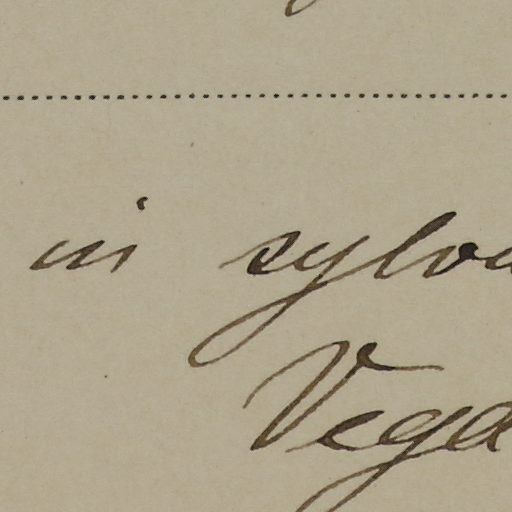 in sylva
Vega